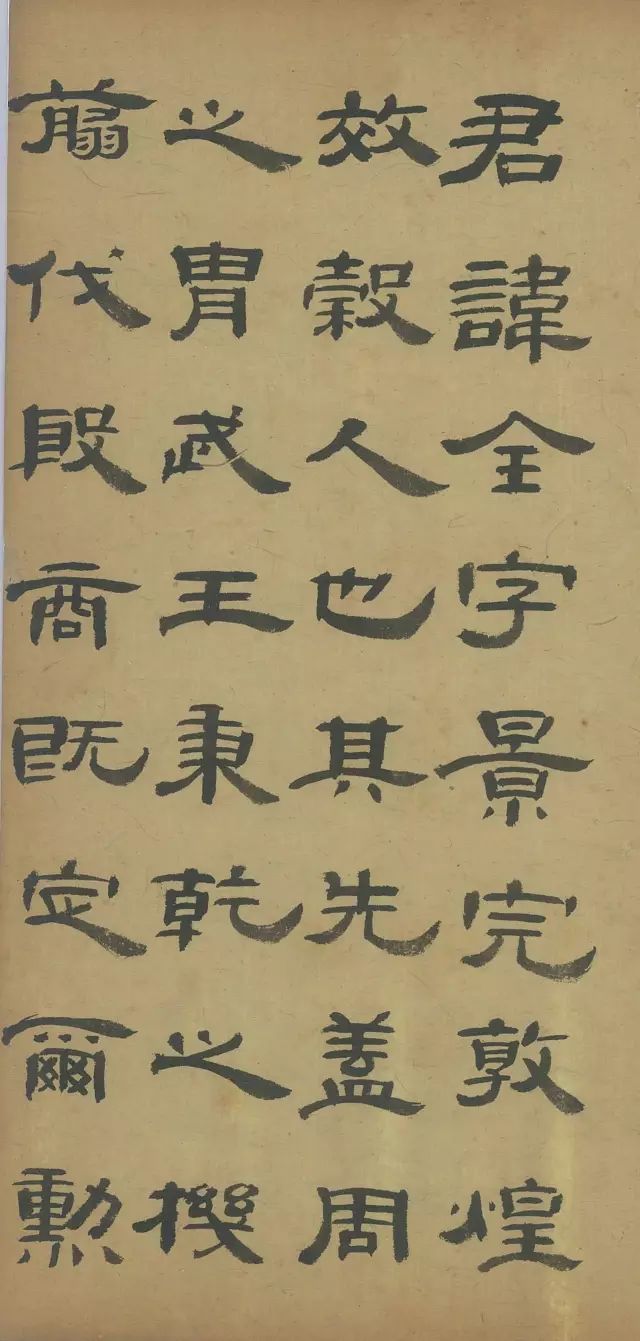 君諱全字景完敦煌
效穀人也其先蓋周
之胄武王秉乾之機
翦伐殷商既定爾勳